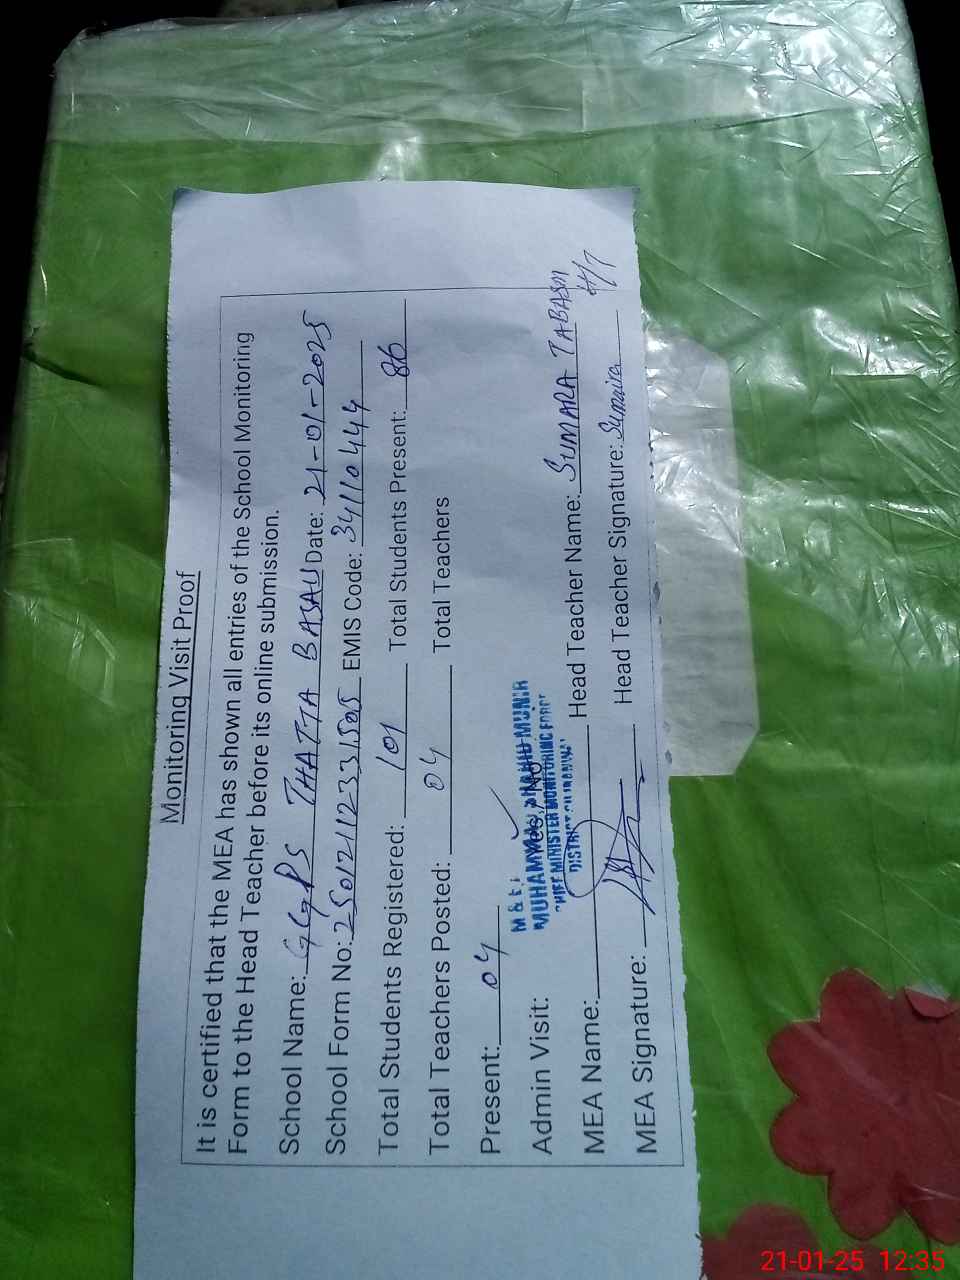 Monitoring Visit Proof
It is certified that the MEA has shown all entries of the School Monitoring
Form to the Head Teacher before its online submission.
School Name: GGPS THATTA BASAU Date: 21-01-2025
School Form No: 25012112331505 EMIS Code: 34110444
Total Students Registered: 101 Total Students Present: 86
Total Teachers Posted: 04 Total Teachers
Present: 04
Admin Visit: Yes / No
M & E
MUHAMMAD SHAHID MUNIR
CHIEF MINISTER MONITORING FORCE
DISTRICT
MEA Name: Head Teacher Name: SUMARA TABASM
H/T
MEA Signature: Head Teacher Signature: Sumaira
21-01-25 12:35